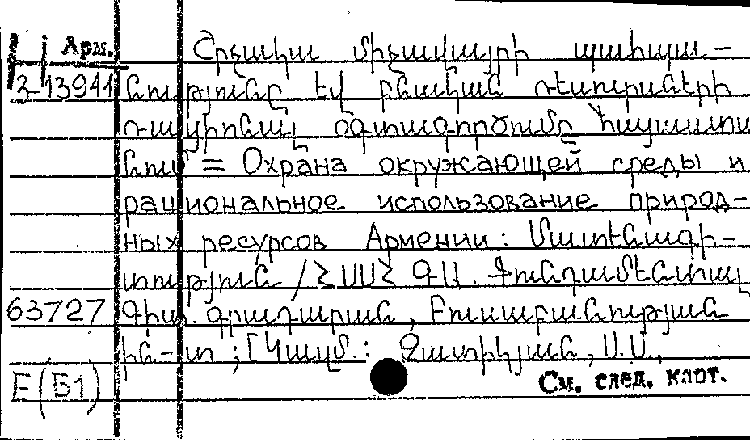 Арм. Շրջակա միջավայրի պահպա-
2-13941 նությունը եվ բնական ռեսուրսների
ռացիոնալ օգտագործումը Հայաստա
նում = Охрана окружающей среды и
рациональное использование природ-
ных ресурсов Армении: Մատենագի-
տություն / ՀՍՍՀ ԳԱ. Ֆունդամենտալ
63727 Գիտ. գրադարան, Բուսաբանության
ին-տ ; [Կազմ.: Զատիկյան, Ս.Ս.,
Е(Б1) См. след. карт.